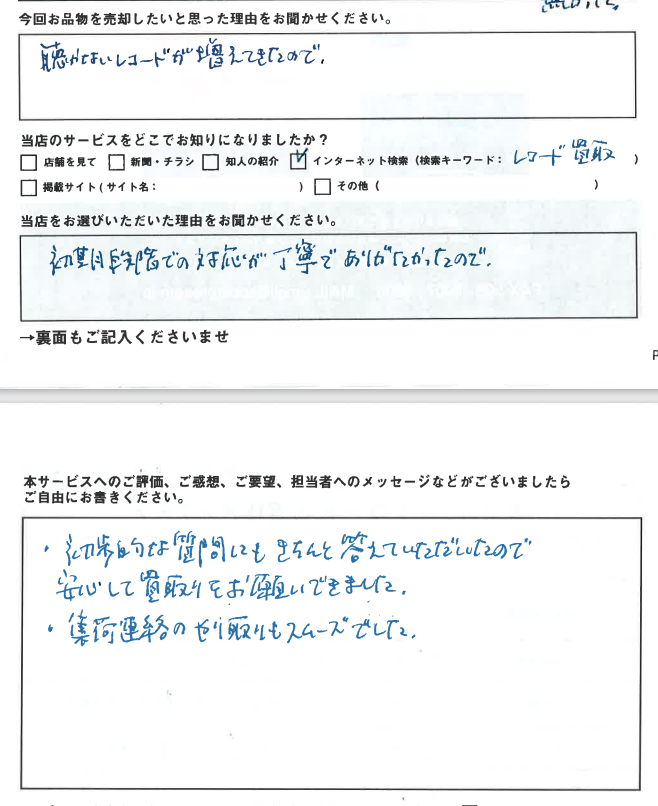 今回お品物を売却したいと思った理由をお聞かせください。
聴かないレコードが増えてきたので。
当店のサービスをどこでお知りになりましたか？
□ 店舗を見て □ 新聞・チラシ □ 知人の紹介 ☑ インターネット検索（検索キーワード： レコード 買取 ）
□ 掲載サイト( サイト名： ) □ その他（ ）
当店をお選びいただいた理由をお聞かせください。
初期段階での対応が丁寧でありがたかったので。
→裏面もご記入くださいませ
P
本サービスへのご評価、ご感想、ご要望、担当者へのメッセージなどがございましたら
ご自由にお書きください。
・初歩的な質問にもきちんと答えていただいたので
安心して買取りをお願いできました。
・集荷連絡のやり取りもスムーズでした。